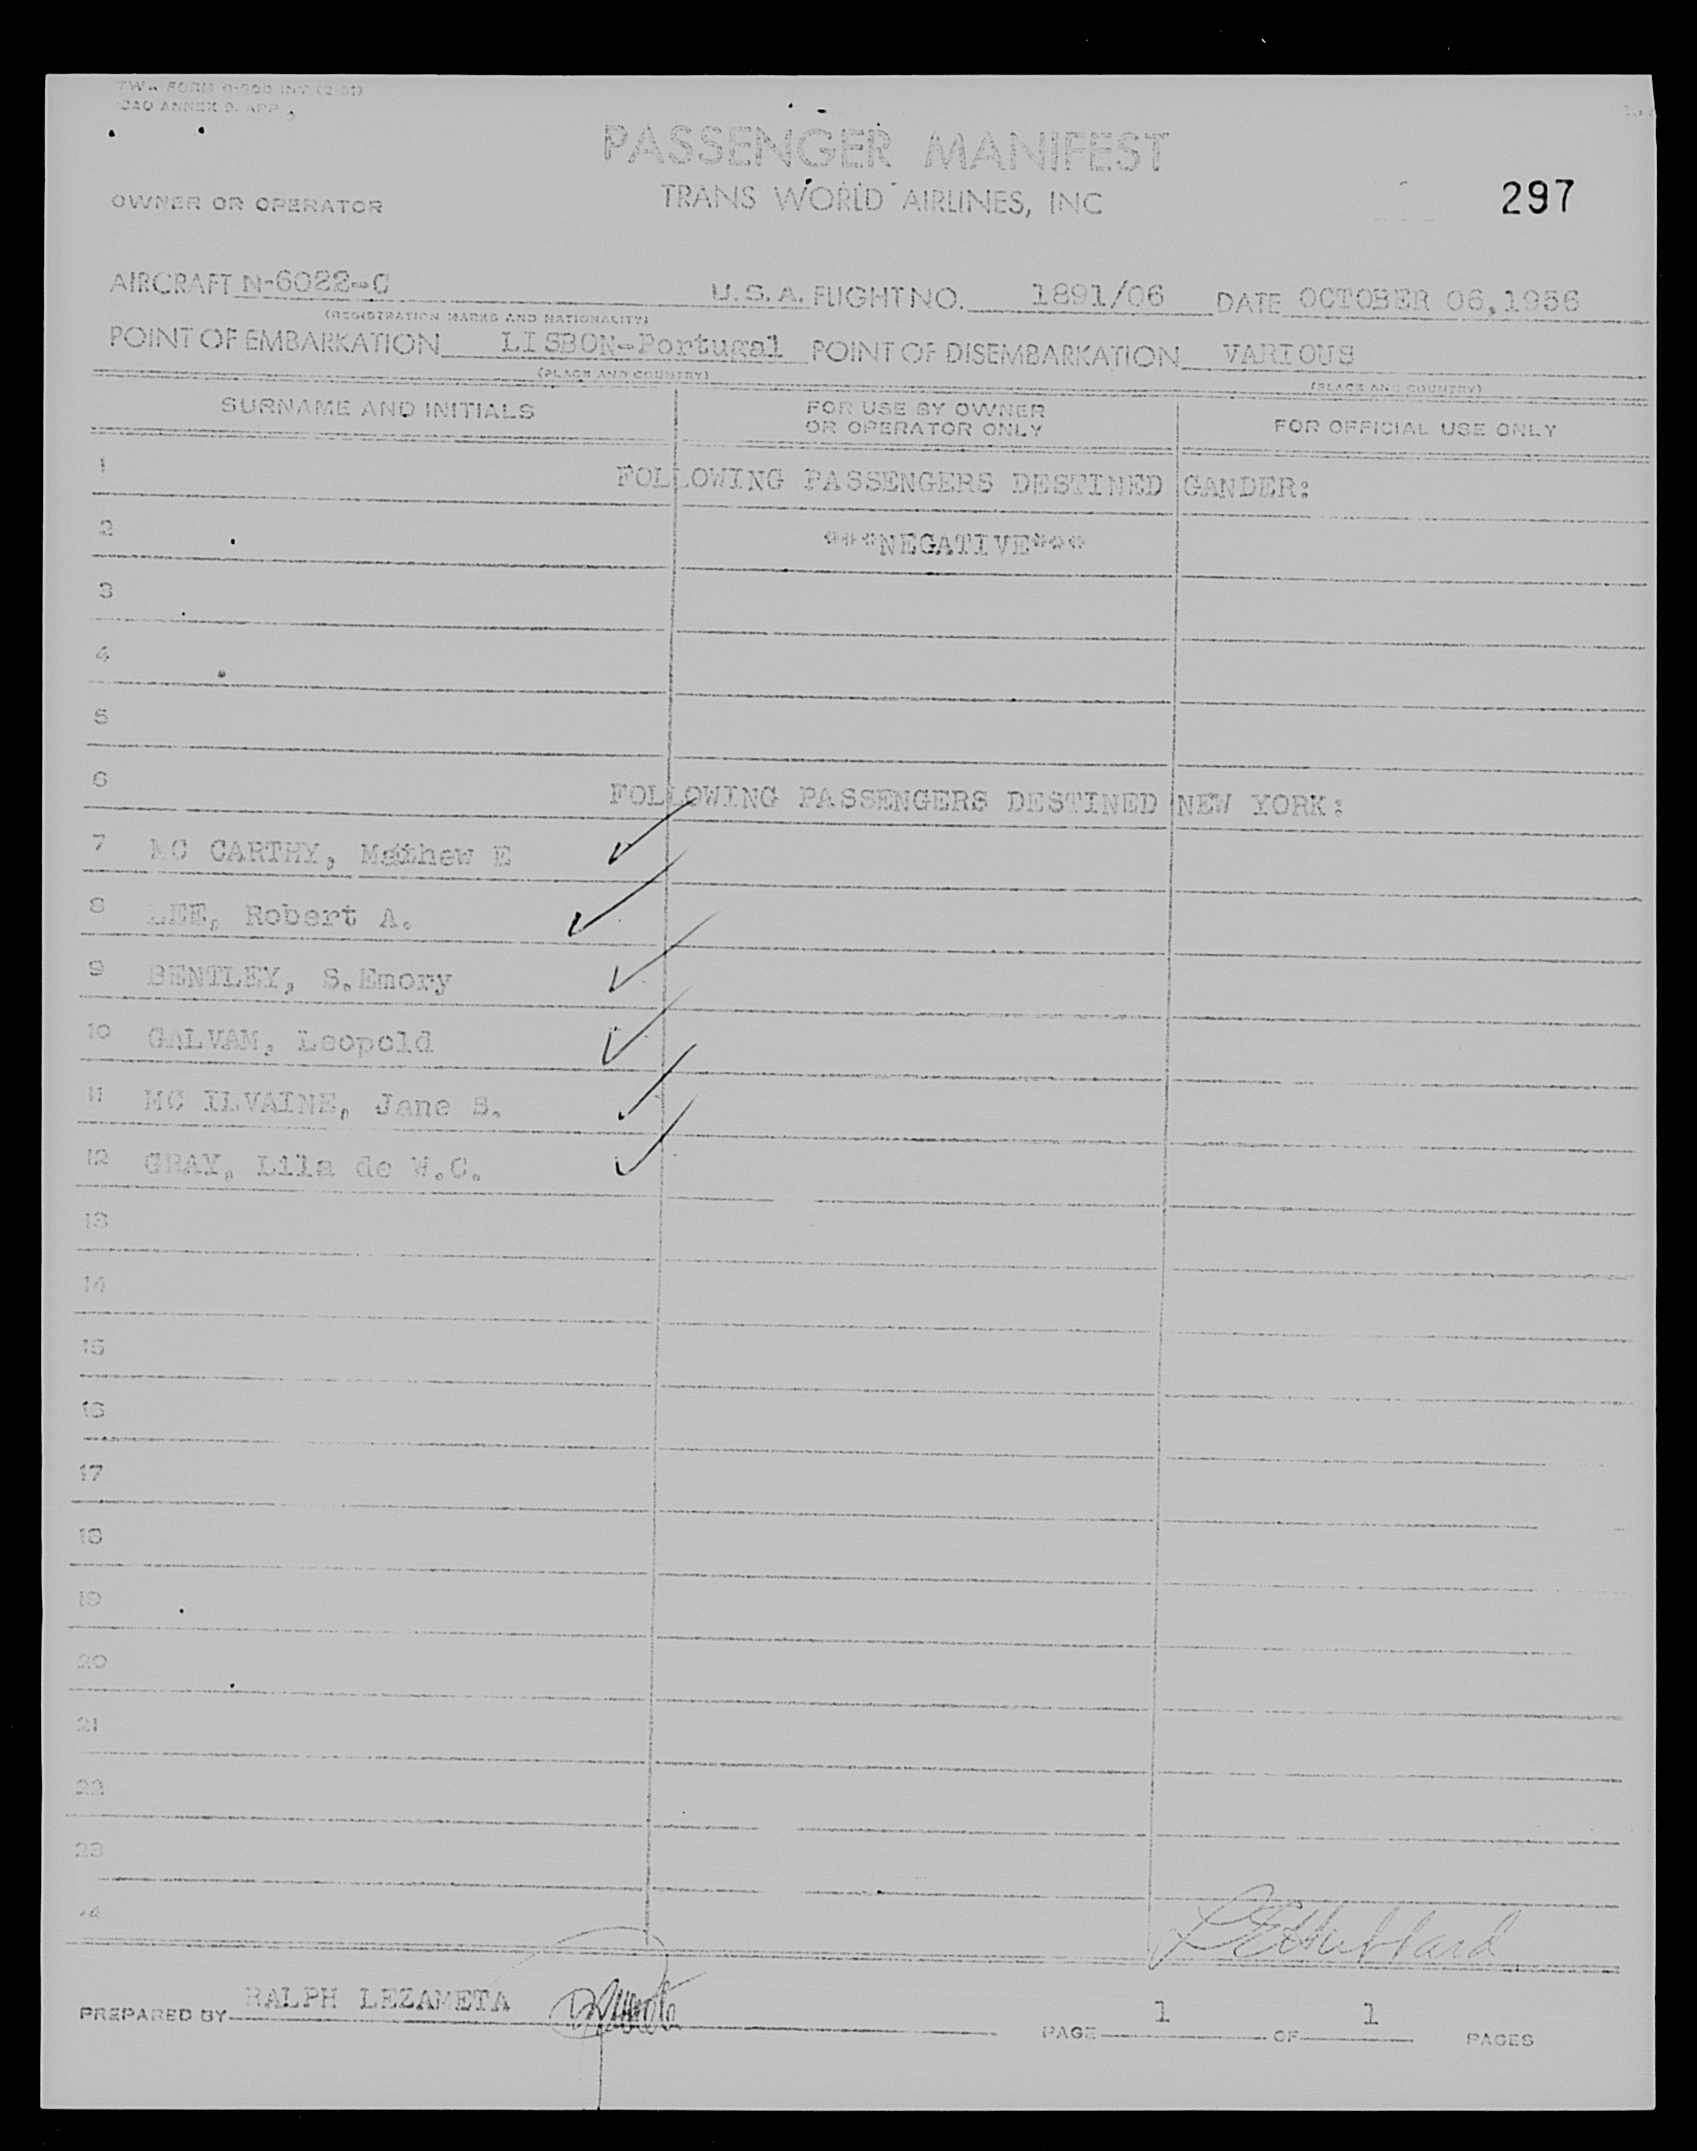 TWA FORM
ICAO ANNEX 9. APP
PASSENGER MANIFEST
OWNER OR OPERATOR
TRANS WORLD AIRLINES, INC
297
AIRCRAFT N-6022-C U.S.A. FLIGHT NO. 1891/06 DATE OCTOBER 06,1956
(REGISTRATION MARKS AND NATIONALITY)
POINT OF EMBARKATION LISBON-Portugal POINT OF DISEMBARKATION VARIOUS
(PLACE AND COUNTRY) (PLACE AND COUNTRY)
SURNAME AND INITIALS FOR USE BY OWNER OR OPERATOR ONLY FOR OFFICIAL USE ONLY
1 FOLLOWING PASSENGERS DESTINED GANDER:
2 ***NEGATIVE***
3
4
5
6 FOLLOWING PASSENGERS DESTINED NEW YORK:
7 MC CARTHY, Matthew E
8 LEE, Robert A.
9 BENTLEY, S.Emory
10 GALVAM, Leopold
11 MC ILVAINE, Jane S.
12 GRAY, Lila de W.C.
13
14
15
16
17
18
19
20
21
22
23
24
PREPARED BY RALPH LEZAMETA PAGE 1 OF 1 PAGES